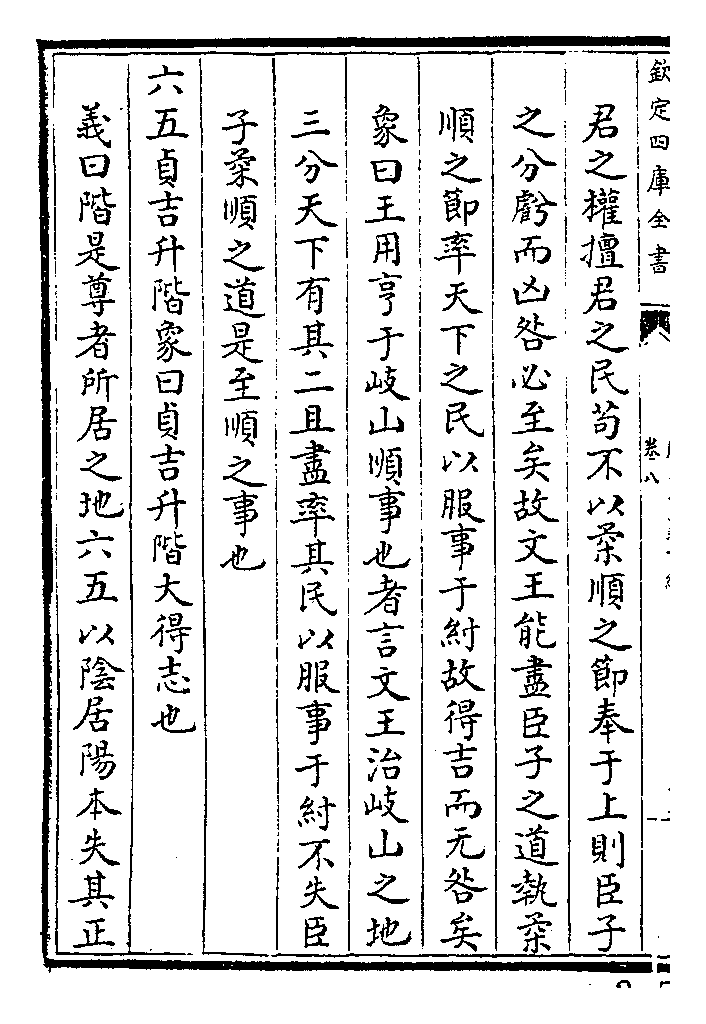 欽定四庫全書
卷八
君之權擅君之民茍不以柔順之節奉于上則臣子
之分虧而凶咎必至矣故文王能盡臣子之道執柔
順之節率天下之民以服事于紂故得吉而无咎矣
象曰王用亨于岐山順事也者言文王治岐山之地
三分天下有其二且盡率其民以服事于紂不失臣
子柔順之道是至順之事也
六五貞吉升階象曰貞吉升階大得志也
義曰階是尊者所居之地六五以陰居陽本失其正